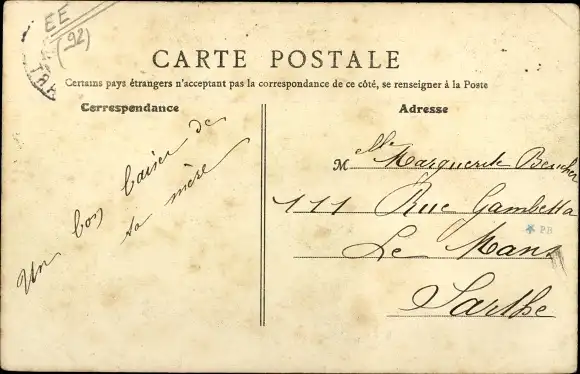 EE
(92)
CARTE POSTALE
Certains pays étrangers n'acceptant pas la correspondance de ce côté, se renseigner à la Poste
Correspondance
Adresse
Un bon baiser de
ta mère
Melle Marguerite
111 Rue Gambetta
Le Mans
Sarthe
PB